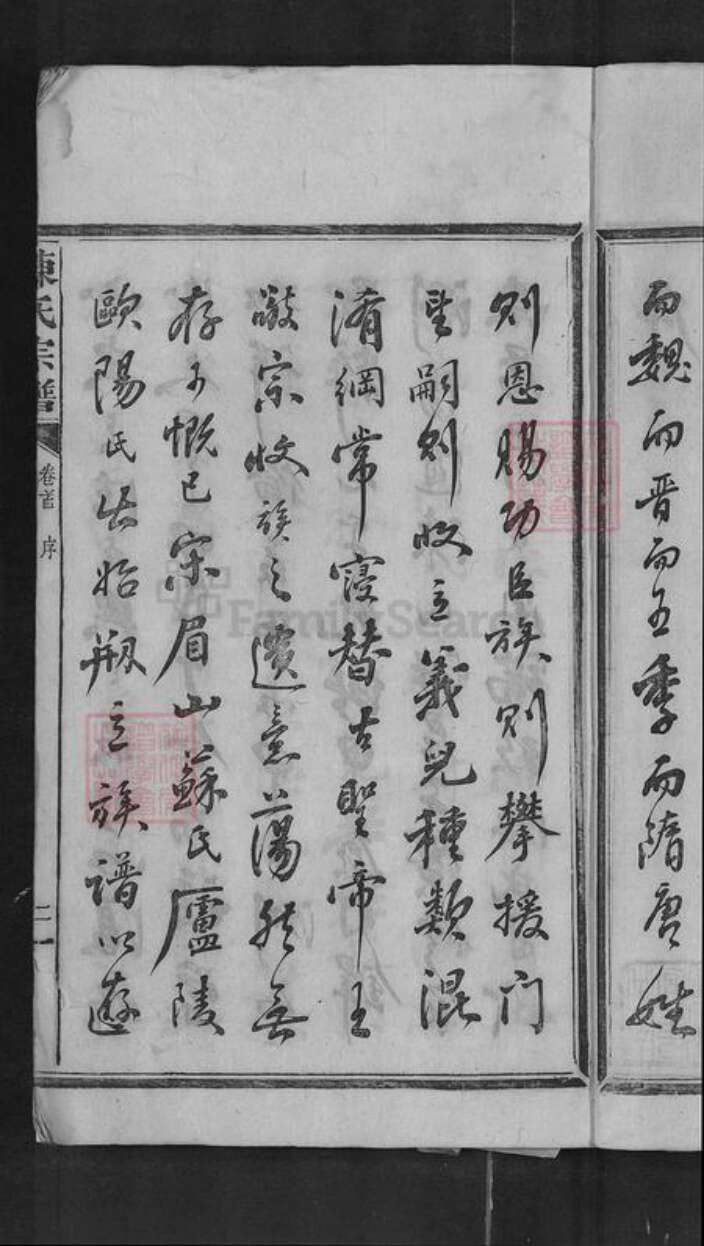 而魏而晋而五季而隋唐姓
則恩賜功臣族則攀援門
望嗣則收立義兒種類混
淆綱常寖替古聖帝王
敬宗收族之遺意蕩然無
存可慨已宋眉山蘇氏廬陵
歐陽氏出始剏立族譜以遊
陳氏宗譜
卷首 序
二
FamilySearch